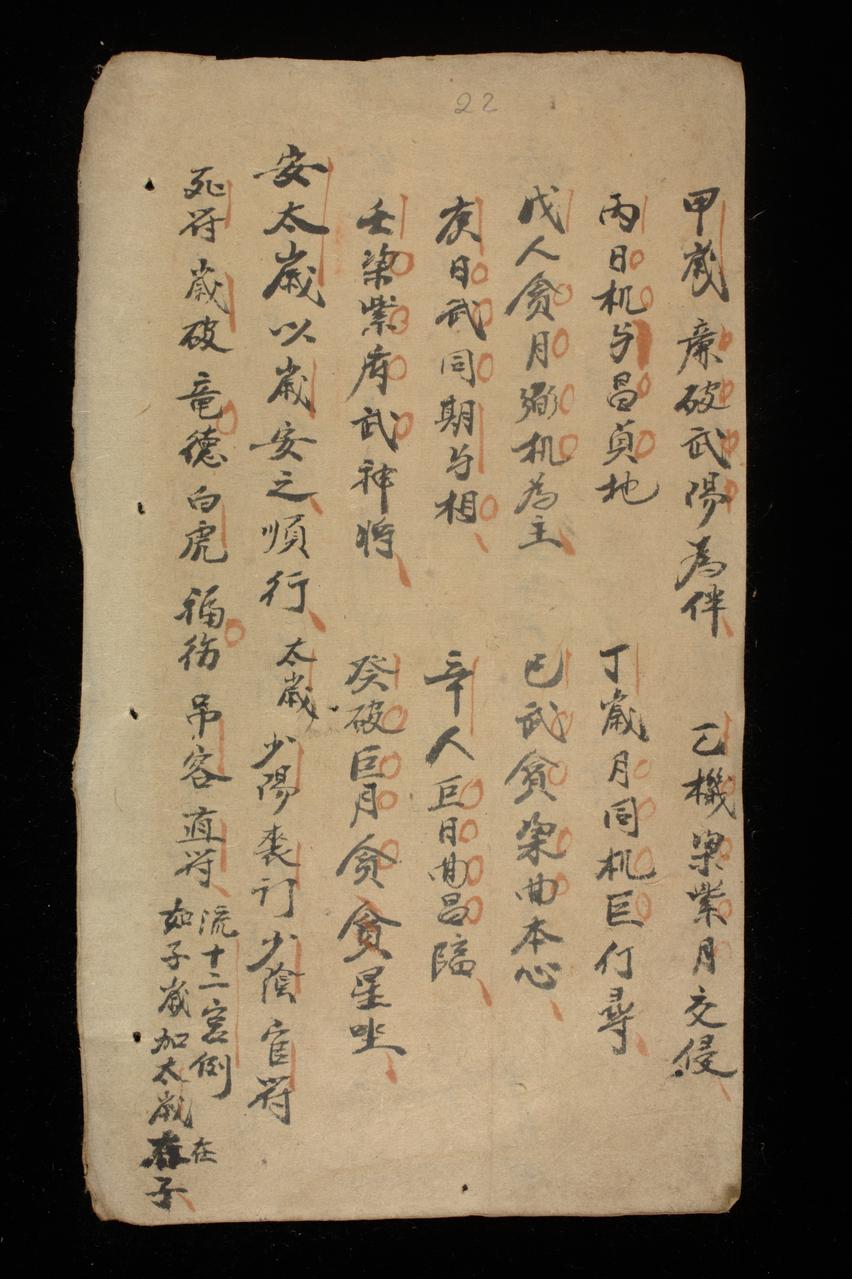 22
甲歲廉破武陽為伴 乙機梁紫月交侵
丙日机与昌貞地 丁歲月同机巨行尋
戊人貪月弼机為主 己武貪梁曲本心
庚日武同期与相 辛人巨日曲昌臨
壬梁紫府武神將 癸破巨月貪貪星坐
安太歲以歲安之順行 太歲 少陽 喪门 少陰 官符
死符 歲破 竜德 白虎 福德 吊客 直符
流十二宮倒在
如子歲加太歲 子